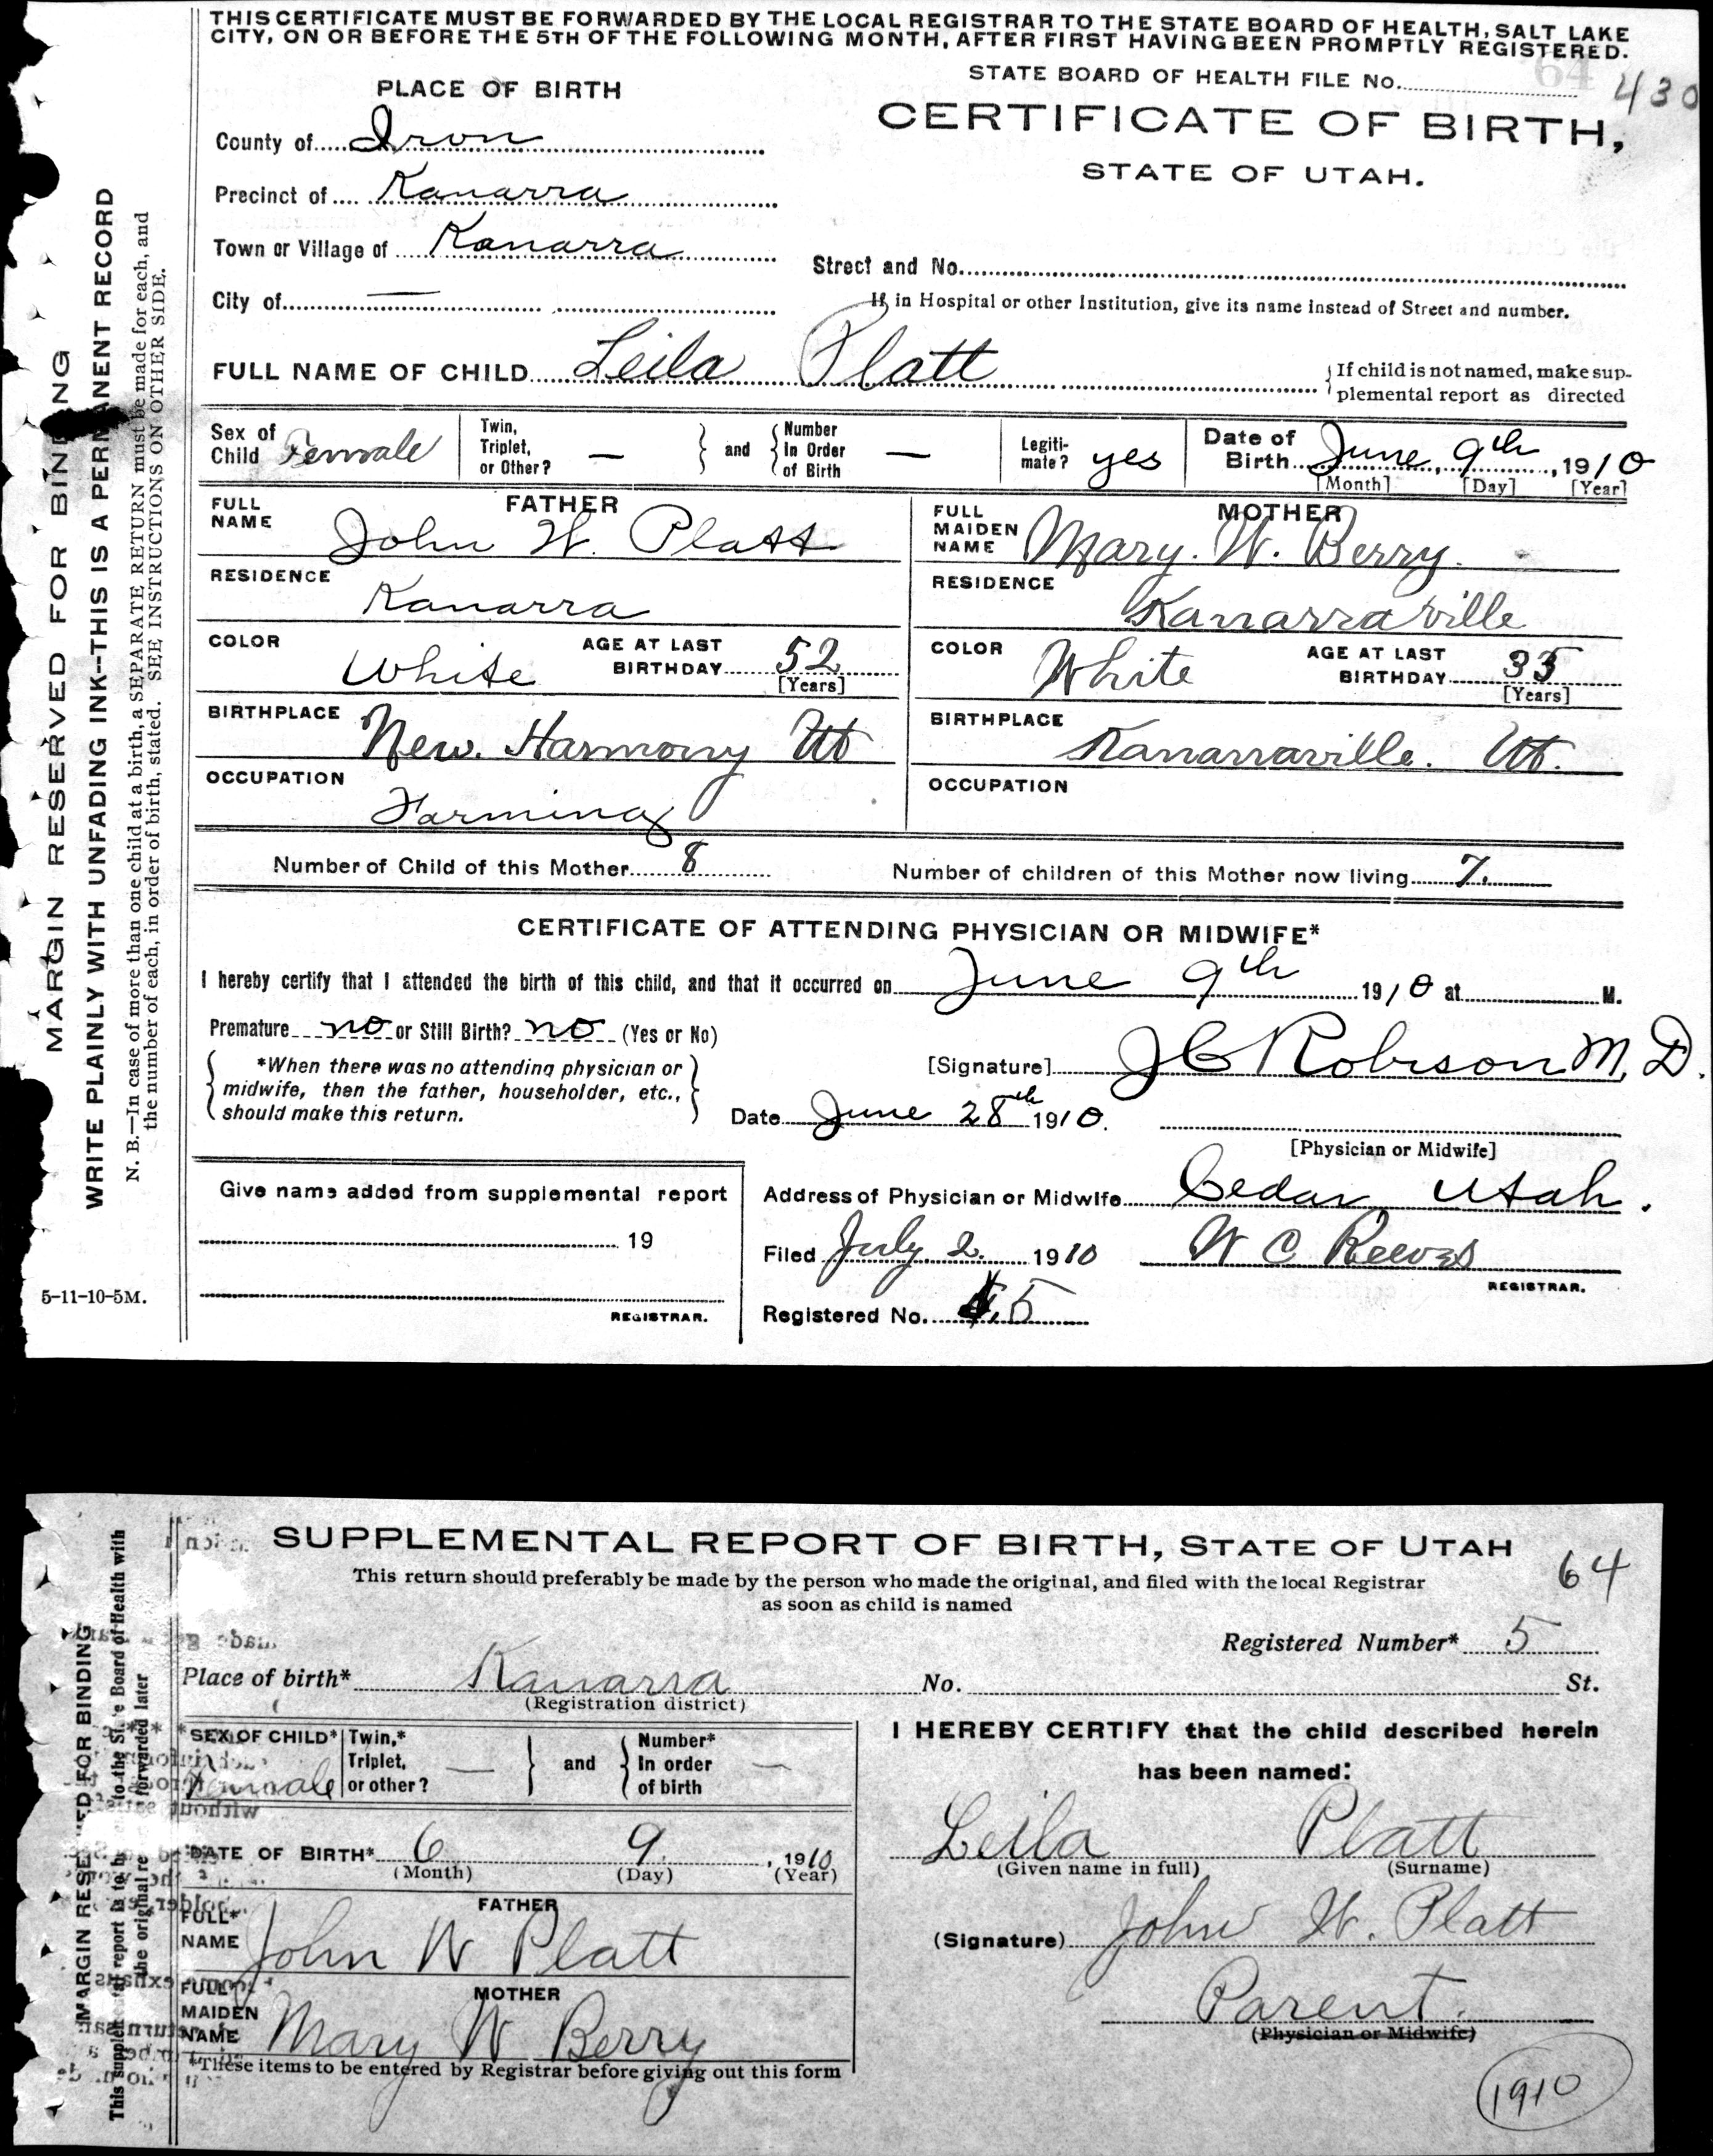 THIS CERTIFICATE MUST BE FORWARDED BY THE LOCAL REGISTRAR TO THE STATE BOARD OF HEALTH, SALT LAKE
CITY, ON OR BEFORE THE 5TH OF THE FOLLOWING MONTH, AFTER FIRST HAVING BEEN PROMPTLY REGISTERED.
STATE BOARD OF HEALTH FILE No. 64 430
CERTIFICATE OF BIRTH,
STATE OF UTAH.
PLACE OF BIRTH
County of Iron
Precinct of Kanarra
Town or Village of Kanarra
Street and No.
City of —
If in Hospital or other Institution, give its name instead of Street and number.
FULL NAME OF CHILD Leila Platt
If child is not named, make sup-
plemental report as directed
Sex of Child Female
Twin, Triplet, or Other? —
and
Number In Order of Birth —
Legiti-mate? yes
Date of Birth June, 9th, 1910
[Month] [Day] [Year]
FATHER
FULL NAME John W. Platt
RESIDENCE Kanarra
COLOR White
AGE AT LAST BIRTHDAY 52 [Years]
BIRTHPLACE New. Harmony Ut
OCCUPATION Farming
MOTHER
FULL MAIDEN NAME Mary. W. Berry.
RESIDENCE Kanarraville
COLOR White
AGE AT LAST BIRTHDAY 35 [Years]
BIRTHPLACE Kanarraville. Ut.
OCCUPATION
Number of Child of this Mother 8
Number of children of this Mother now living 7.
CERTIFICATE OF ATTENDING PHYSICIAN OR MIDWIFE*
I hereby certify that I attended the birth of this child, and that it occurred on June 9th 1910 at M.
Premature no or Still Birth? no (Yes or No)
*When there was no attending physician or
midwife, then the father, householder, etc.,
should make this return.
[Signature] J C Robison M. D.
Date June 28th 1910.
[Physician or Midwife]
Give name added from supplemental report
19
REGISTRAR.
Address of Physician or Midwife Cedar Utah.
Filed July 2. 1910 W C Reeves
REGISTRAR.
Registered No. 5
MARGIN RESERVED FOR BINDING
WRITE PLAINLY WITH UNFADING INK--THIS IS A PERMANENT RECORD
N. B.—In case of more than one child at a birth, a SEPARATE RETURN must be made for each, and
the number of each, in order of birth, stated. SEE INSTRUCTIONS ON OTHER SIDE.
5-11-10-5M.
SUPPLEMENTAL REPORT OF BIRTH, STATE OF UTAH
64
This return should preferably be made by the person who made the original, and filed with the local Registrar
as soon as child is named
Registered Number* 5
Place of birth* Kanarra No. St.
(Registration district)
SEX OF CHILD* Female
Twin,* Triplet, or other? —
and
Number* In order of birth —
DATE OF BIRTH* 6 9. , 1910
(Month) (Day) (Year)
FATHER
FULL* NAME John W Platt
MOTHER
FULL* MAIDEN NAME Mary W Berry
*These items to be entered by Registrar before giving out this form
I HEREBY CERTIFY that the child described herein
has been named:
Leila Platt
(Given name in full) (Surname)
(Signature) John W. Platt
Parent.
(Physician or Midwife)
1910
MARGIN RESERVED FOR BINDING
This supplemental report is to be to the State Board of Health with
the original re forwarded later